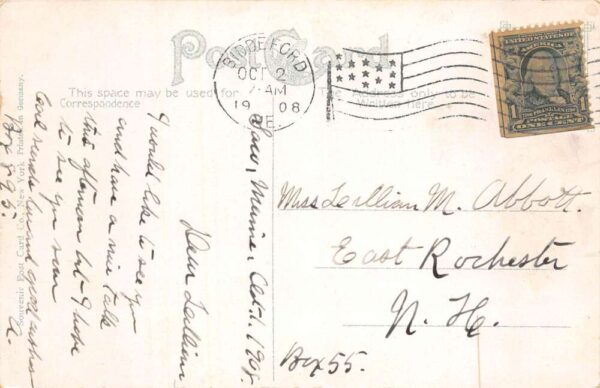 Post Card
This space may be used for
Correspondence
The Address only to be
Written here.
BIDDEFORD
OCT 2
7-AM
1908
ME.
UNITED STATES OF
AMERICA
POSTAGE
ONE CENT
1
1
Saco, Maine, Oct. 1. 1908.
Dear Lillian,
I would like to see you
and have a nice talk
this afternoon but I hope
to see you soon
Card
good wishes
A.
Box 895.
Miss Lillian M. Abbott.
East Rochester
N. H.
Box 55.
Souvenir Post Card Co., New York. Printed in Germany.